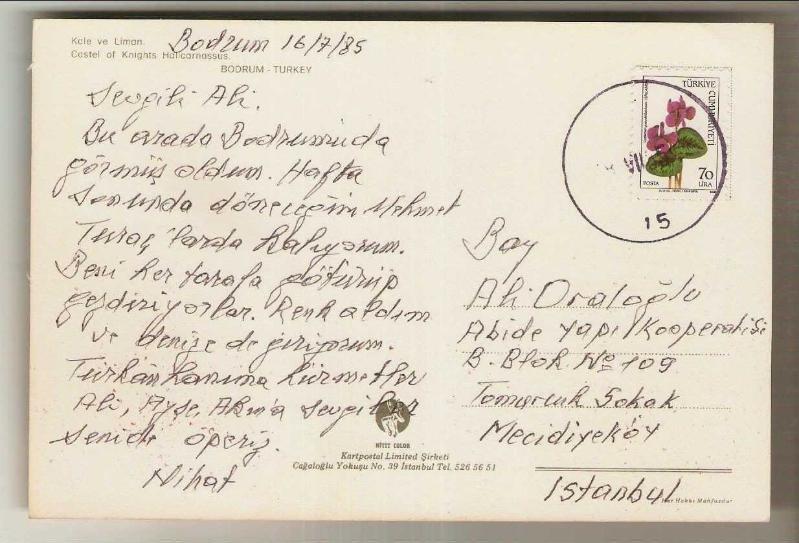 Kale ve Liman.
Bodrum 16/7/85
Castel of Knights Halicarnassus.
BODRUM - TURKEY
Sevgili Ali.
Bu arada Bodrumuda
görmüş oldum. Hafta
sonunda döneceğim Mehmet
Turaç'larda kalıyorum.
Beni her tarafa götürüp
gezdiriyorlar. Renk aldım
ve denize de giriyorum.
Türkan hanıma hürmetler
Ali, Ayşe, sevgiler
senide öperiz.
Nihat
TÜRKİYE
CUMHURİYETİ
70
LİRA
POSTA
15
Bay
Ali Oraloğlu
Abide Yapı Kooperatifi
B. Blok No 109
Tomurcuk Sokak
Mecidiyeköy
Istanbul
HİTİT COLOR
Kartpostal Limited Şirketi
Cağaloğlu Yokuşu No. 39 İstanbul Tel. 526 56 51
Her Hakkı Mahfuzdur